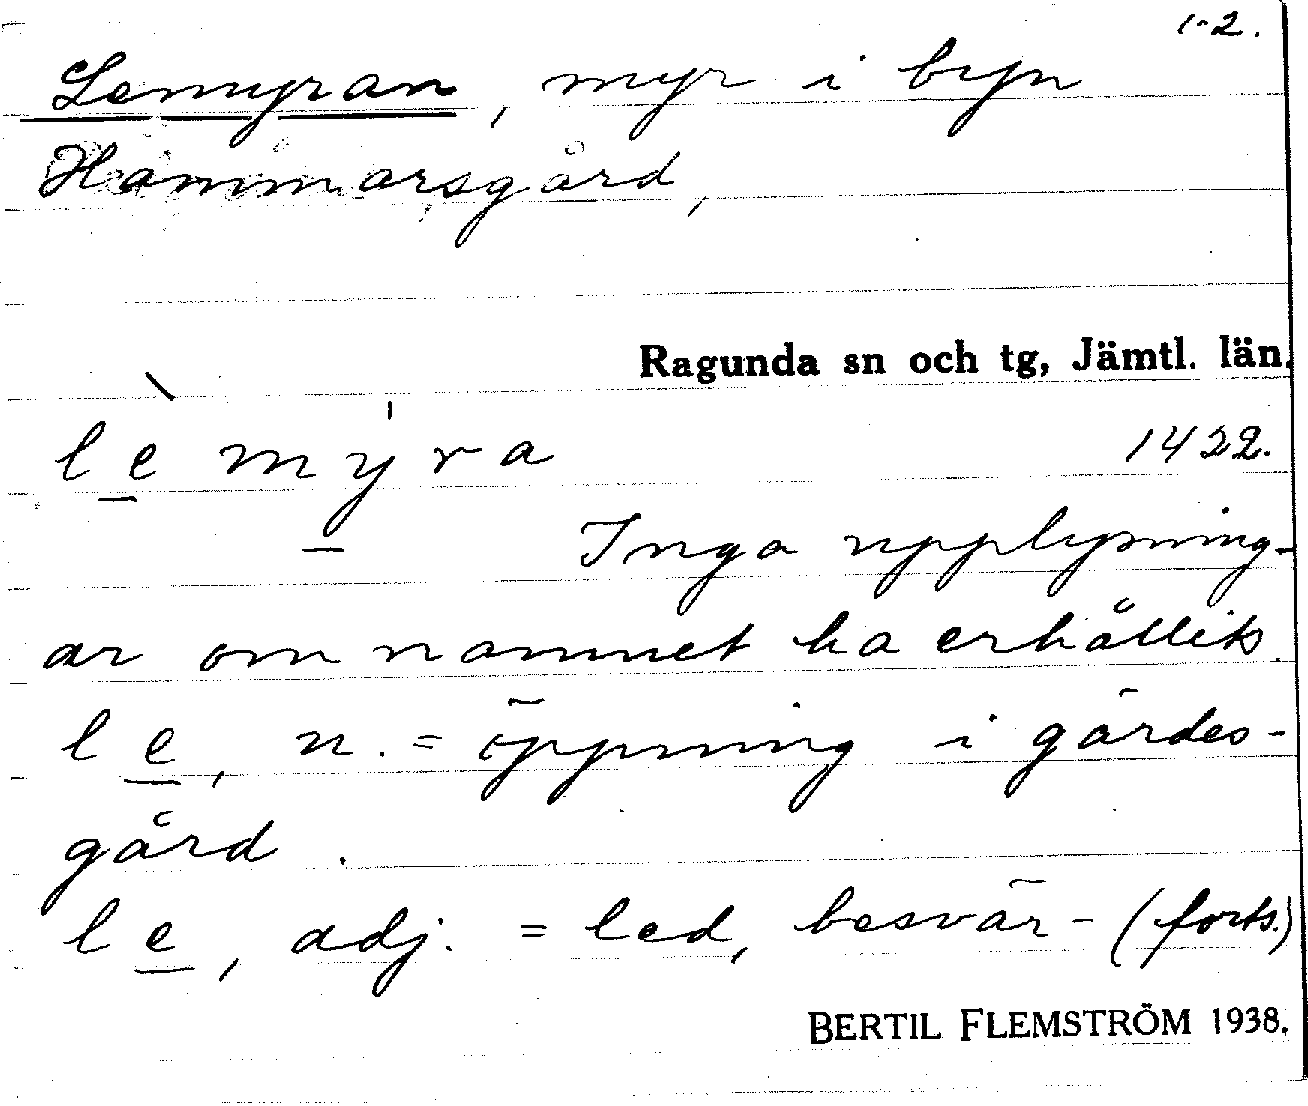 1-2.
Lemyran, myr i byn
Hammarsgård,
Ragunda sn och tg, Jämtl. län.
lèmýra
1422.
Inga upplysning-
ar om namnet ha erhållits.
le, n. = öppning i gärdes-
gård.
le, adj. = led, besvär- (forts.)
BERTIL FLEMSTRÖM 1938.